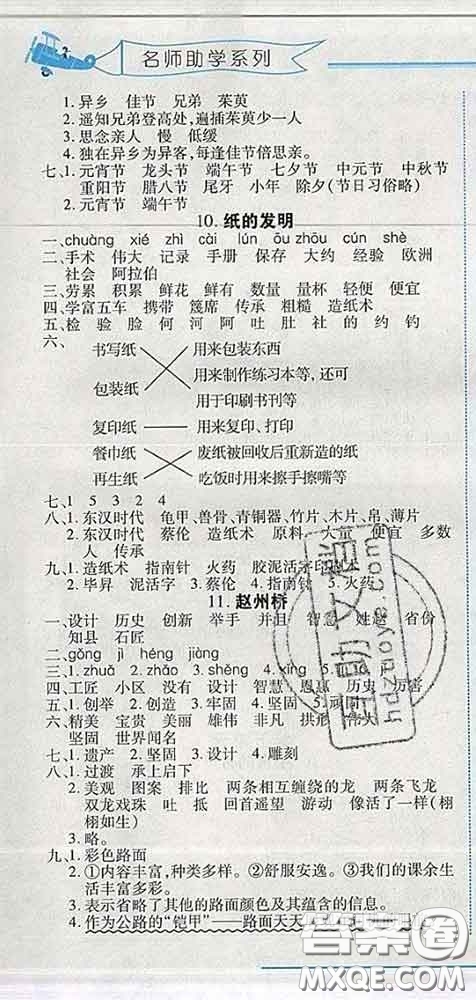 名师助学系列
1. 异乡 佳节 兄弟 茱萸
2. 遥知兄弟登高处,遍插茱萸少一人
3. 思念亲人 慢 低缓
4. 独在异乡为异客,每逢佳节倍思亲。
七、1. 元宵节 龙头节 端午节 七夕节 中元节 中秋节
重阳节 腊八节 尾牙 小年 除夕(节日习俗略)
2. 元宵节 端午节
10. 纸的发明
一、chuàng xié zhì cài lún ōu zhōu cún shè
二、手术 伟大 记录 手册 保存 大约 经验 欧洲
社会 阿拉伯
三、劳累 积累 鲜花 鲜有 数量 量杯 轻便 便宜
四、学富五车 携带 篾席 传承 粗糙 造纸术
五、检 验 脸 何 河 阿 吐 肚 社 的 约 钓
六、
书写纸 用来包装东西
包装纸 用来制作练习本等,还可
用于印刷书刊等
复印纸 用来复印、打印
餐巾纸 废纸被回收后重新造的纸
再生纸 吃饭时用来擦手擦嘴等
七、1 5 3 2 4
八、1. 东汉时代 龟甲、兽骨、青铜器、竹片、木片、帛、薄片
2. 东汉时代 蔡伦 造纸术 原料 大量 便宜 多数
人 传承
九、1. 造纸术 指南针 火药 胶泥活字印刷术
2. 毕昇 泥活字 3. 蔡伦 4. 指南针 5. 火药
11. 赵州桥
一、设计 历史 创新 举手 并且 智慧 姓赵 省份
知县 石匠
二、gǒng jì héng jiàng
三、1. zhuā 2. zhǎo 3. shěng 4. xǐng 5.
四、工匠 小区 没有 设计 智慧 恩惠 历史 厉害
五、1. 创举 2. 创造 3. 牢固 4. 坚固 5. 顽固
六、精美 宝贵 美丽 雄伟 非凡 拱形
坚固 世界闻名
七、1. 遗产 2. 坚固 3. 设计 4. 雕刻
八、1. 过渡 承上启下
2. 美观 图案 排比 两条相互缠绕的龙 两条飞龙
双龙戏珠 吐 抵 回首遥望 游动 像活了一样(栩
栩如生)
3. 略。
九、1. 彩色路面
2. ①内容丰富,种类多样。②舒服安逸。③我们的课余生
活丰富多彩。
3. 表示省略了其他的路面颜色及其蕴含的信息。
4. 作为公路的“铠甲”——路面天天
精助文府
hdzuoye.com
答案圈
MXQE.COM